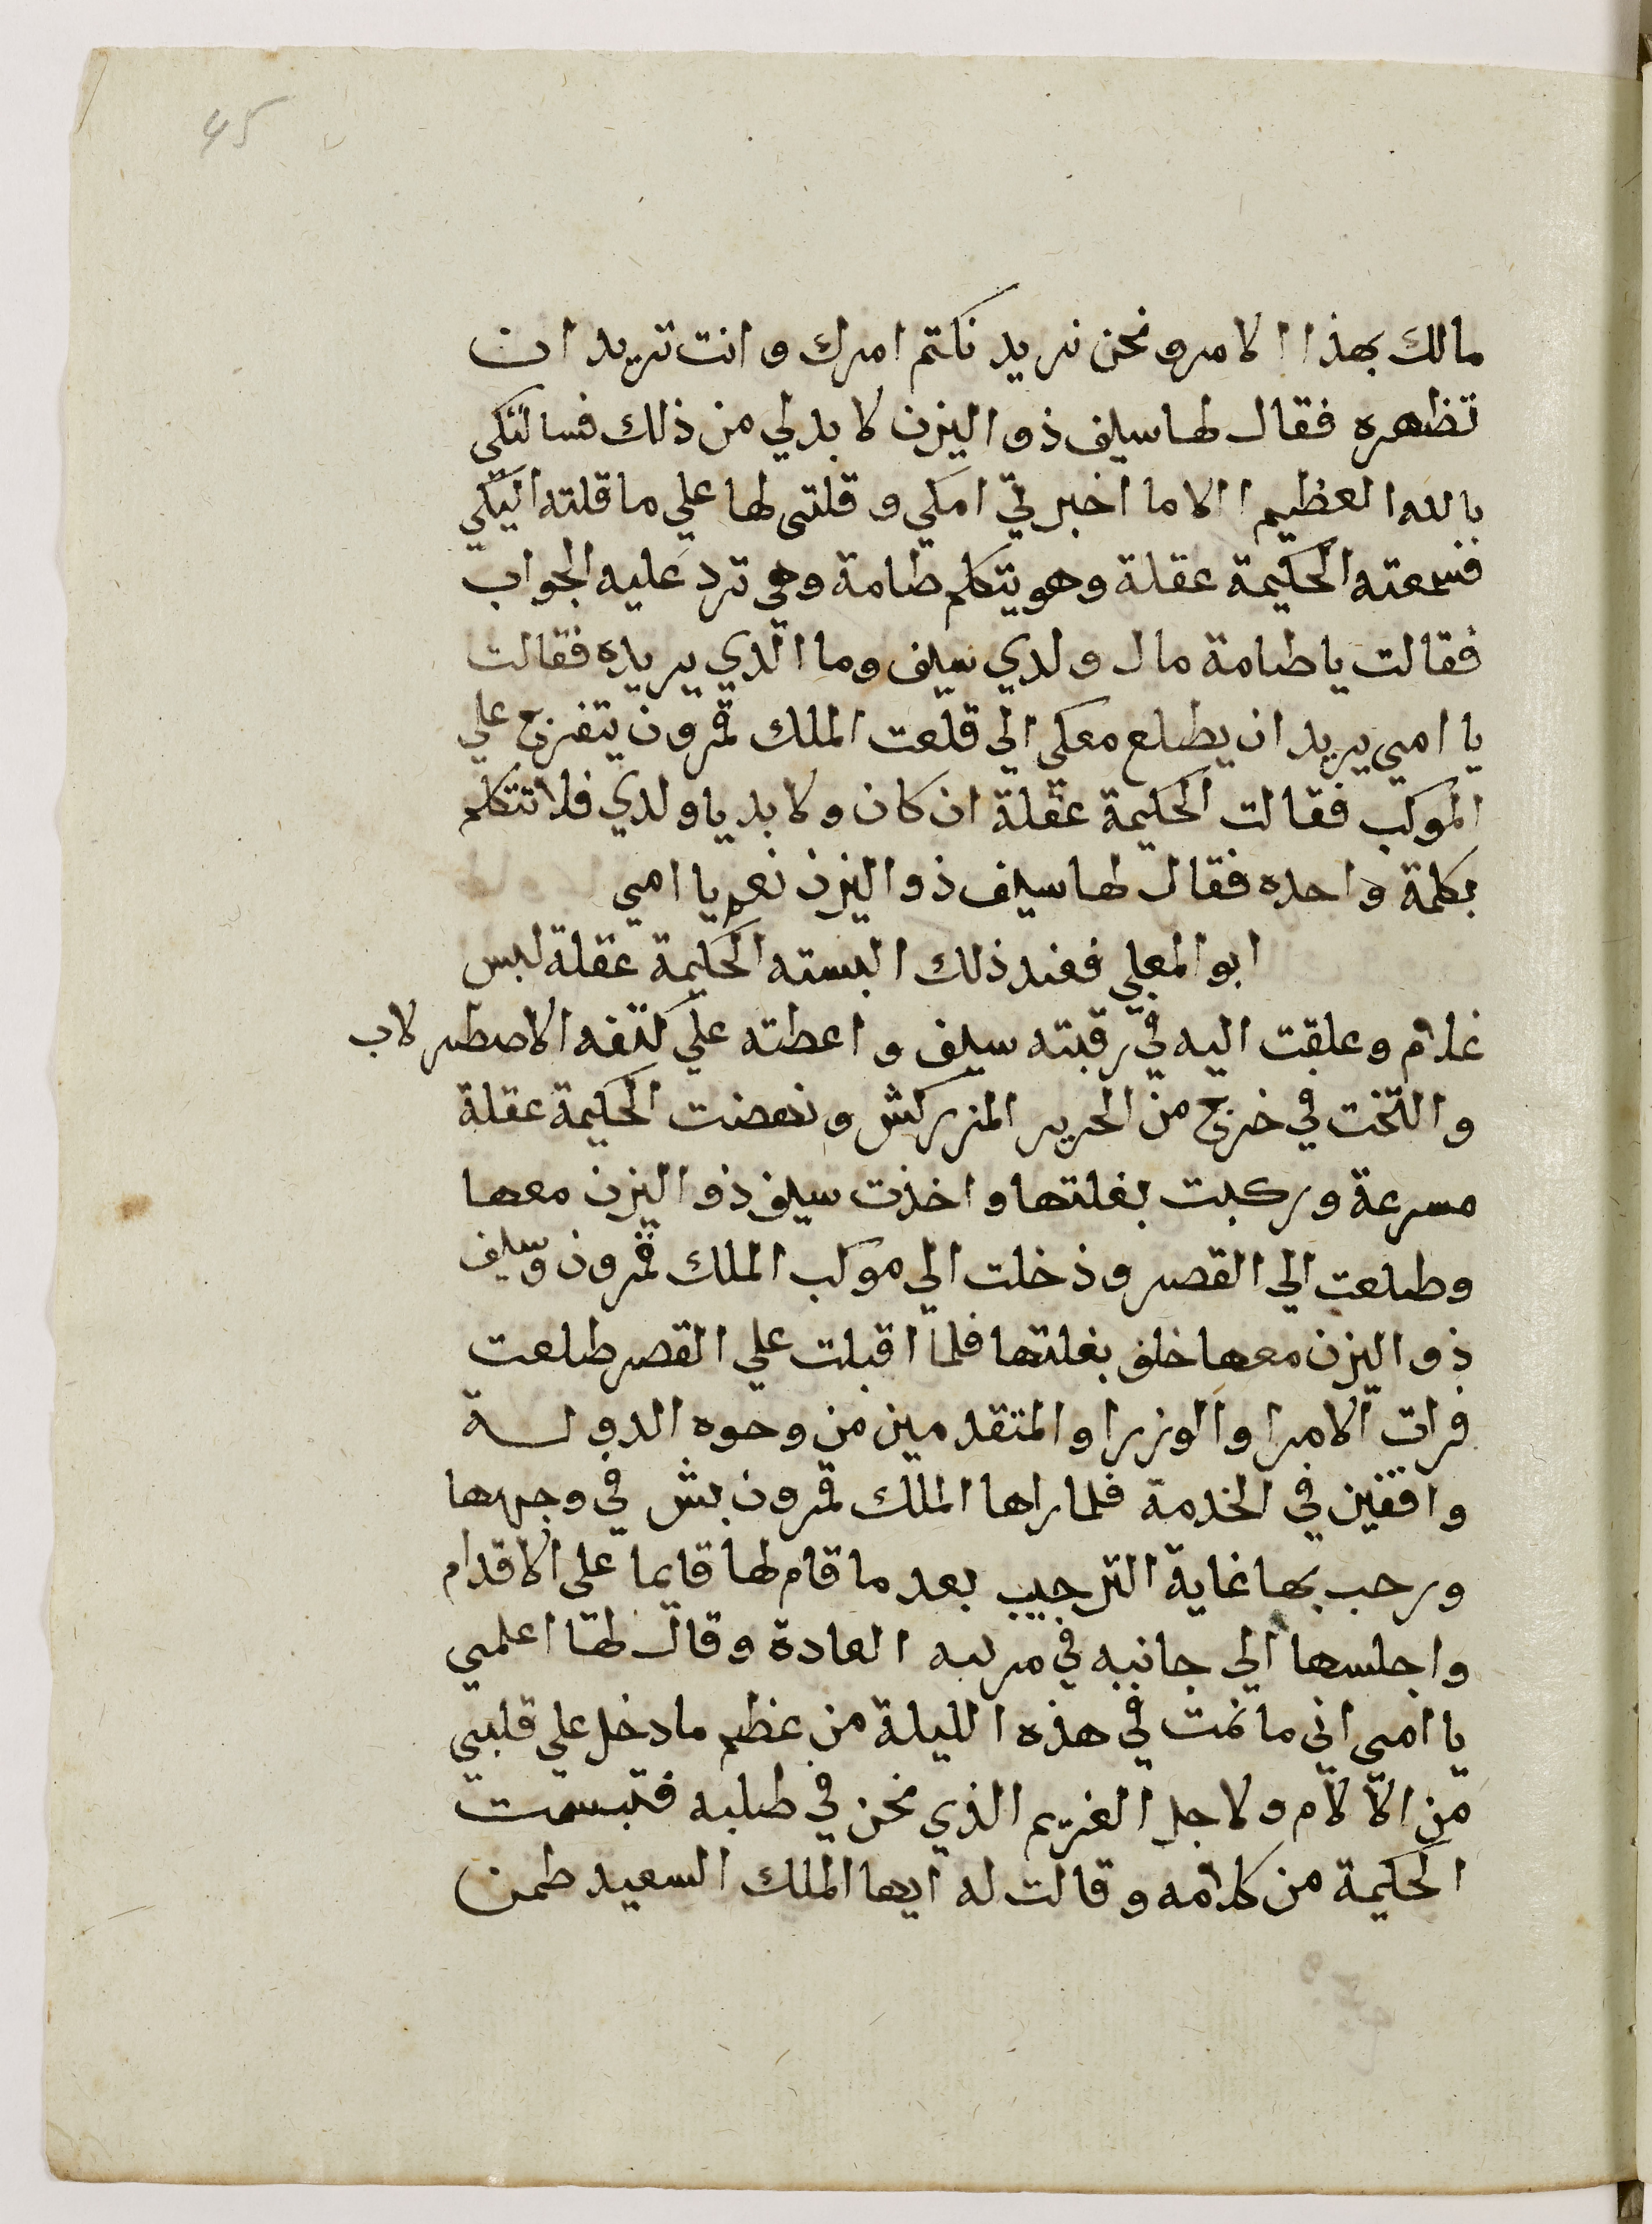 45
مالك بهذا الامر ونحن نريد نكتم امرك وانت تريد ان
تظهره فقال لها سيف ذو اليزن لا بد لي من ذلك فسالتكي
بالله العظيم الا ما اخبرتي امكي وقلتي لها علي ما قلته اليكي
فسمعته الحكيمة عقلة وهو يتكلم طامة وهي ترد عليه الجواب
فقالت يا طامة مال ولدي سيف وما الذي يريده فقالت
يا امي يريد ان يطلع معكي الي قلعت الملك قمرون يتفرج علي
الموكب فقالت الحكيمة عقلة ان كان ولا بد يا ولدي فلا تتكلم
بكلمة واحده فقال لها سيف ذو اليزن نعم يا امي
ابو المعلي فعند ذلك البسته الحكيمة عقلة لبس
غلام وعلقت اليه في رقبته سيف واعطته علي كتفه الاصطرلاب
والتخت في خرج من الحرير المزركش ونهضت الحكيمة عقلة
مسرعة وركبت بغلتها واخذت سيف ذو اليزن معها
وطلعت الي القصر ودخلت الي موكب الملك قمرون وسيف
ذو اليزن معها خلف بغلتها فلما اقبلت علي القصر طلعت
فرات الامرا والوزرا والمتقدمين من وجوه الدولة
واقفين في الخدمة فلما راها الملك قمرون بش في وجهها
ورحب بها غاية الترحيب بعد ما قام لها قايما على الاقدام
واجلسها الي جانبه في مرتبه العادة وقال لها اعلمي
يا امي اني ما نمت في هذه الليلة من عظم ما دخل علي قلبي
من الآلام ولاجل الغريم الذي نحن في طلبه فتبسمت
الحكيمة من كلامه وقالت له ايها الملك السعيد طمن